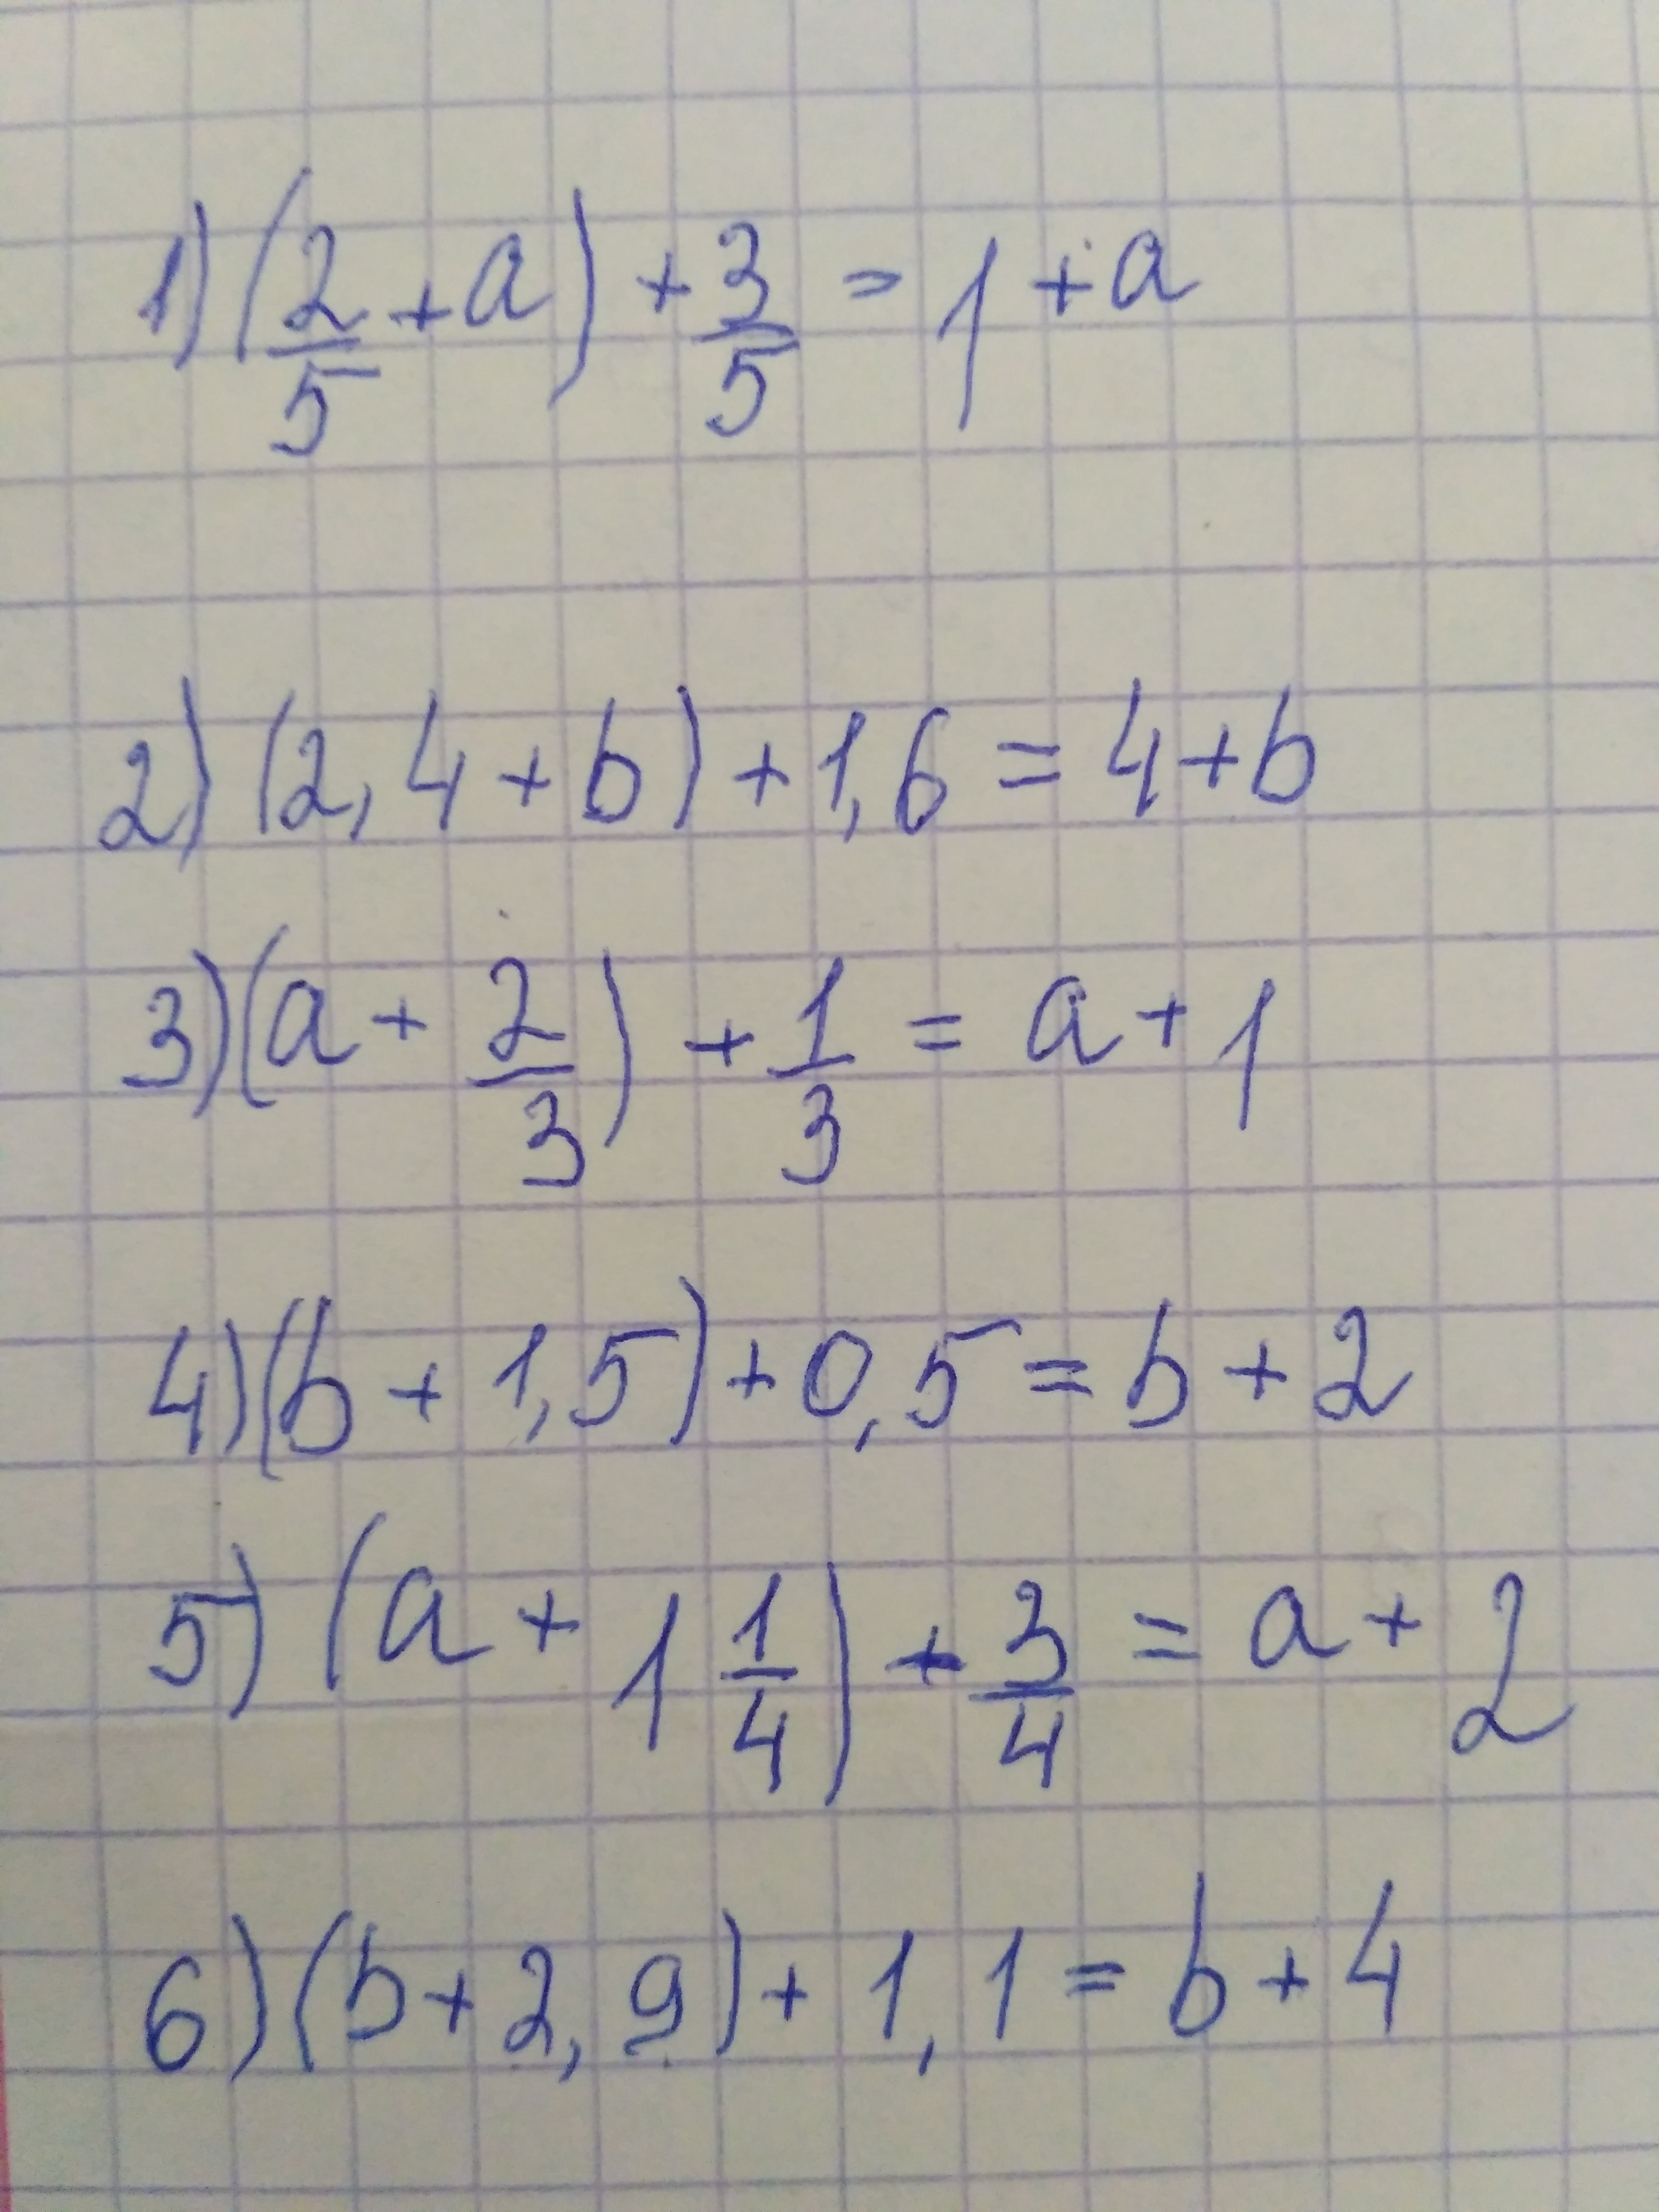 1) (2/5 + a) + 3/5 = 1 + a
2) (2,4 + b) + 1,6 = 4 + b
3) (a + 2/3) + 1/3 = a + 1
4) (b + 1,5) + 0,5 = b + 2
5) (a + 1 1/4) + 3/4 = a + 2
6) (b + 2,9) + 1,1 = b + 4